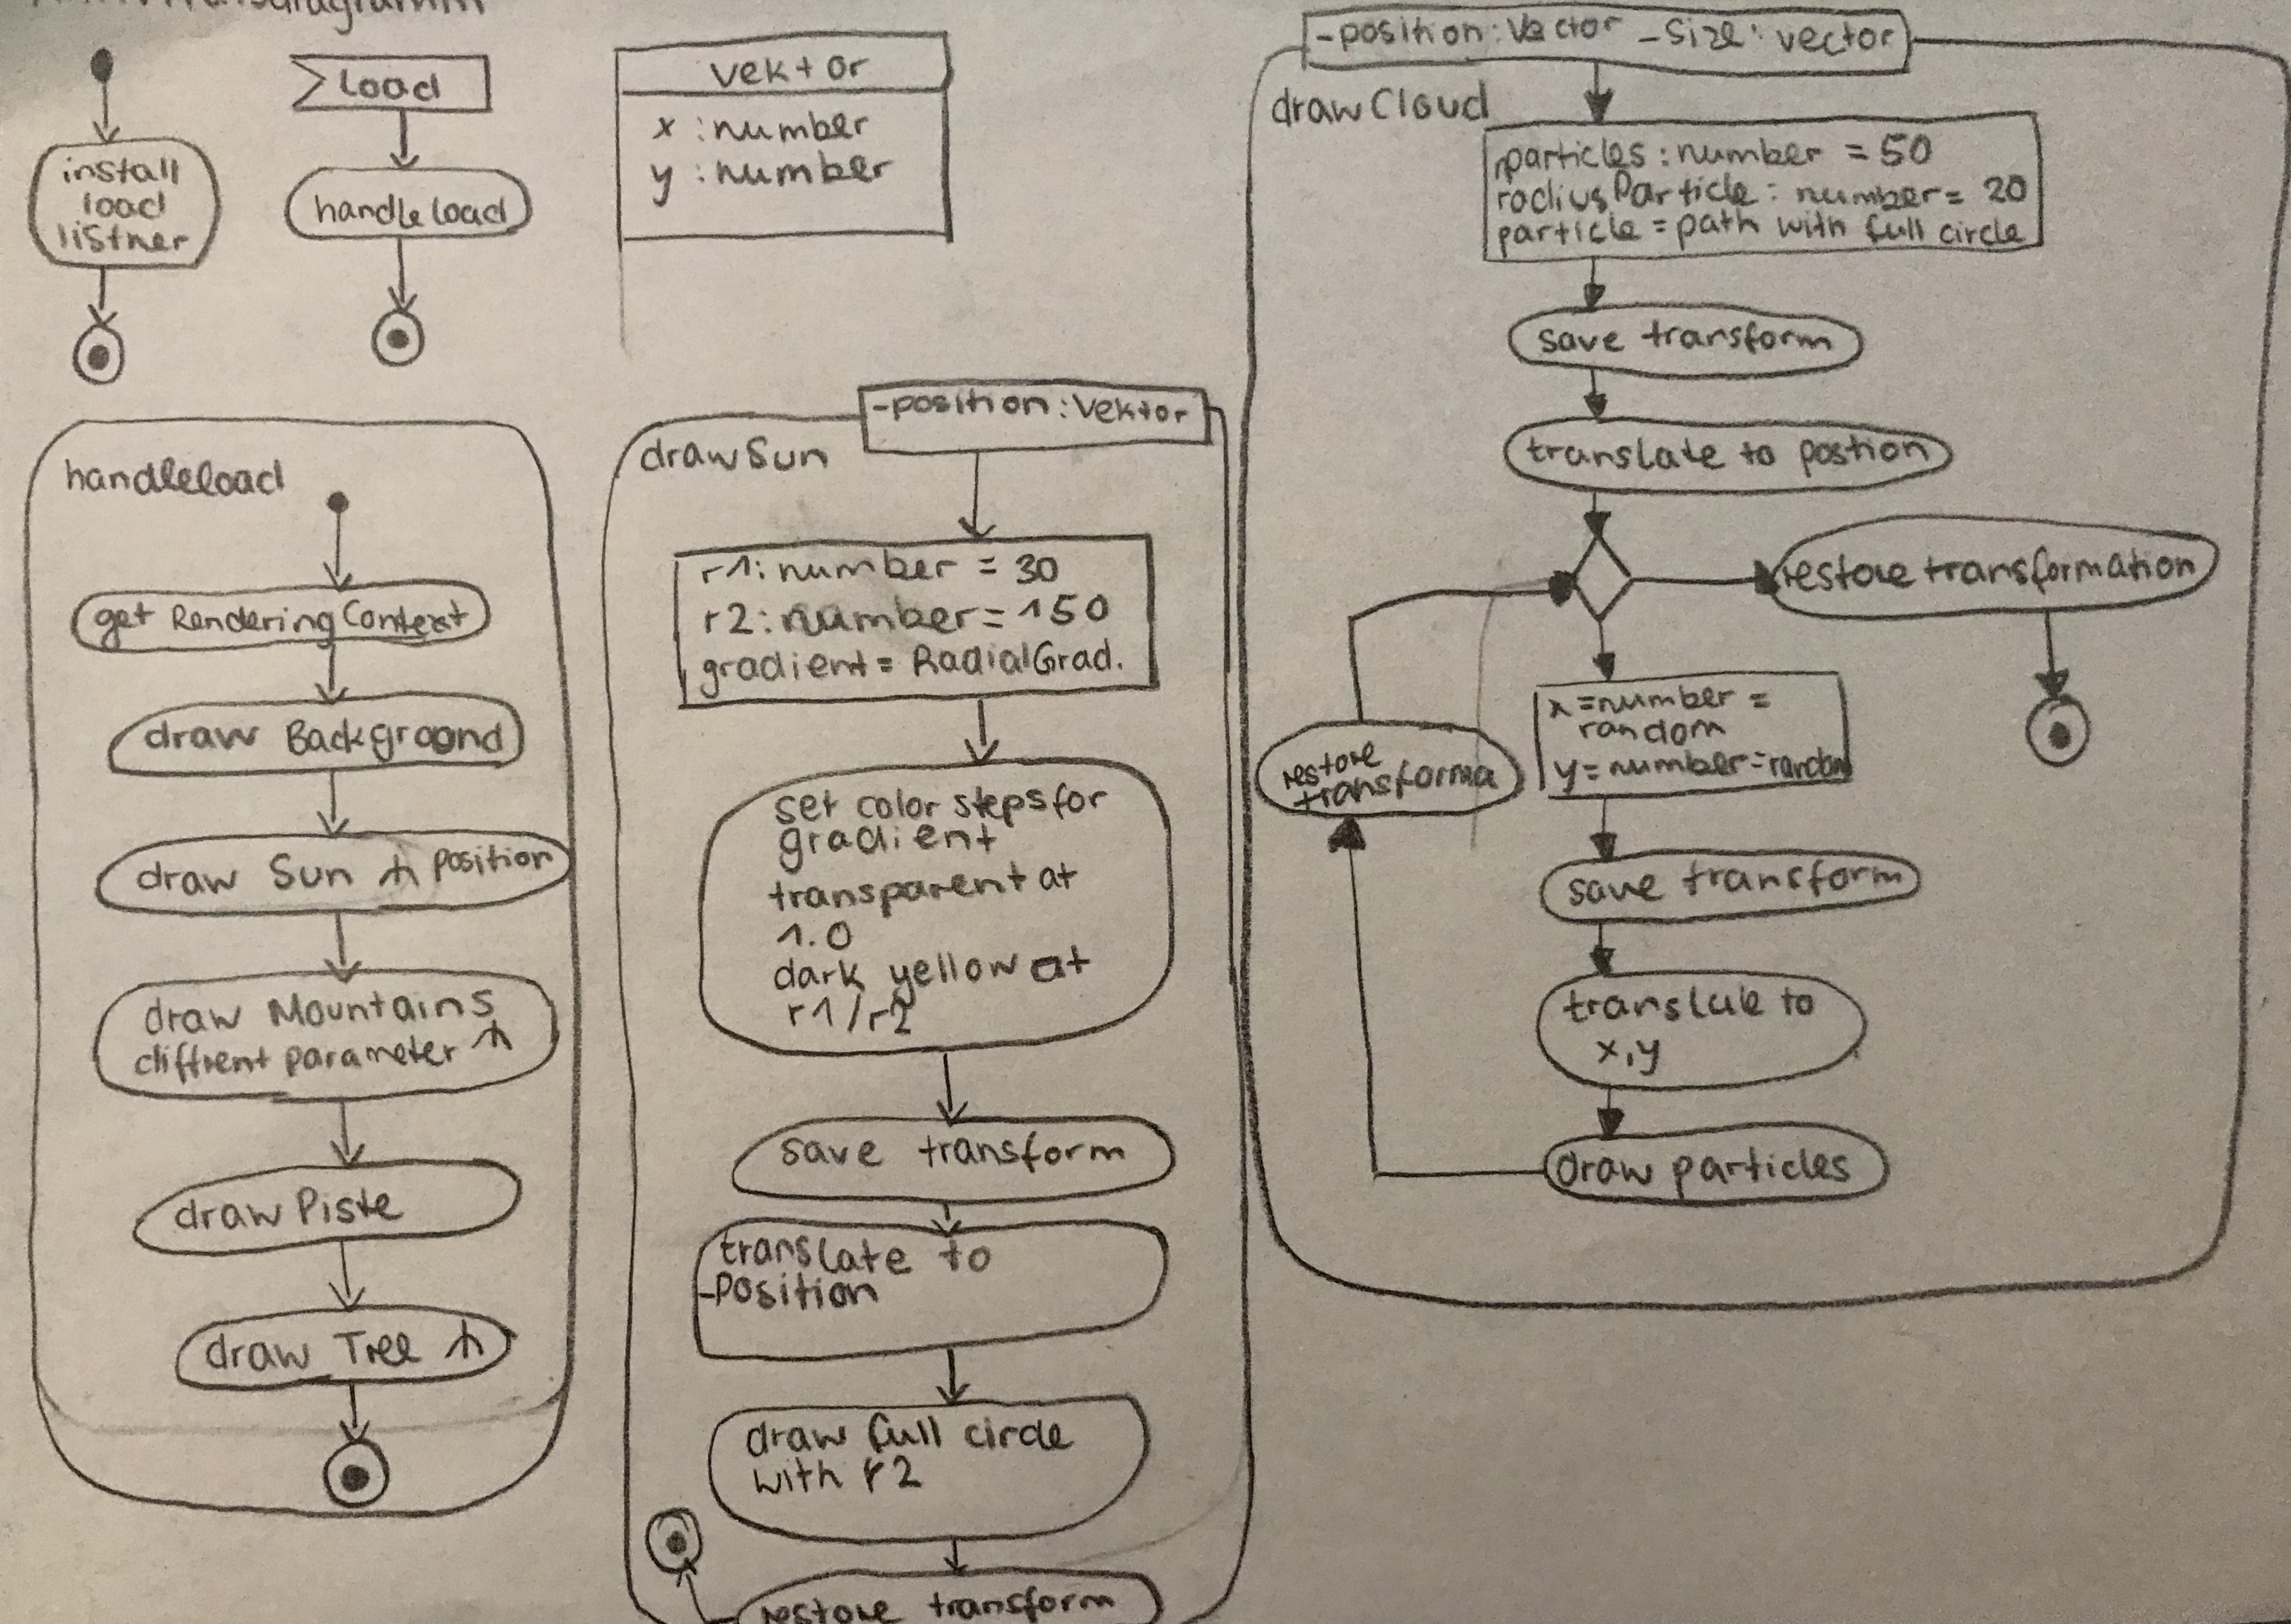 install
load
listner
Load
handleload
vektor
x : number
y : number
handleload
get RenderingContext
draw Background
draw Sun position
draw Mountains
diffrent parameter
draw Piste
draw Tree
-position : Vektor
drawSun
r1: number = 30
r2: number = 150
gradient = RadialGrad.
set color steps for
gradient
transparent at
1.0
dark yellow at
r1/r2
save transform
translate to
-Position
draw full circle
with r2
restore transform
-position : Vector -Size : vector
drawCloud
nparticles : number = 50
radiusParticle : number = 20
particle = path with full circle
save transform
translate to postion
restore transformation
x = number =
random
y = number = random
restore
transforma
save transform
translate to
x,y
draw particles